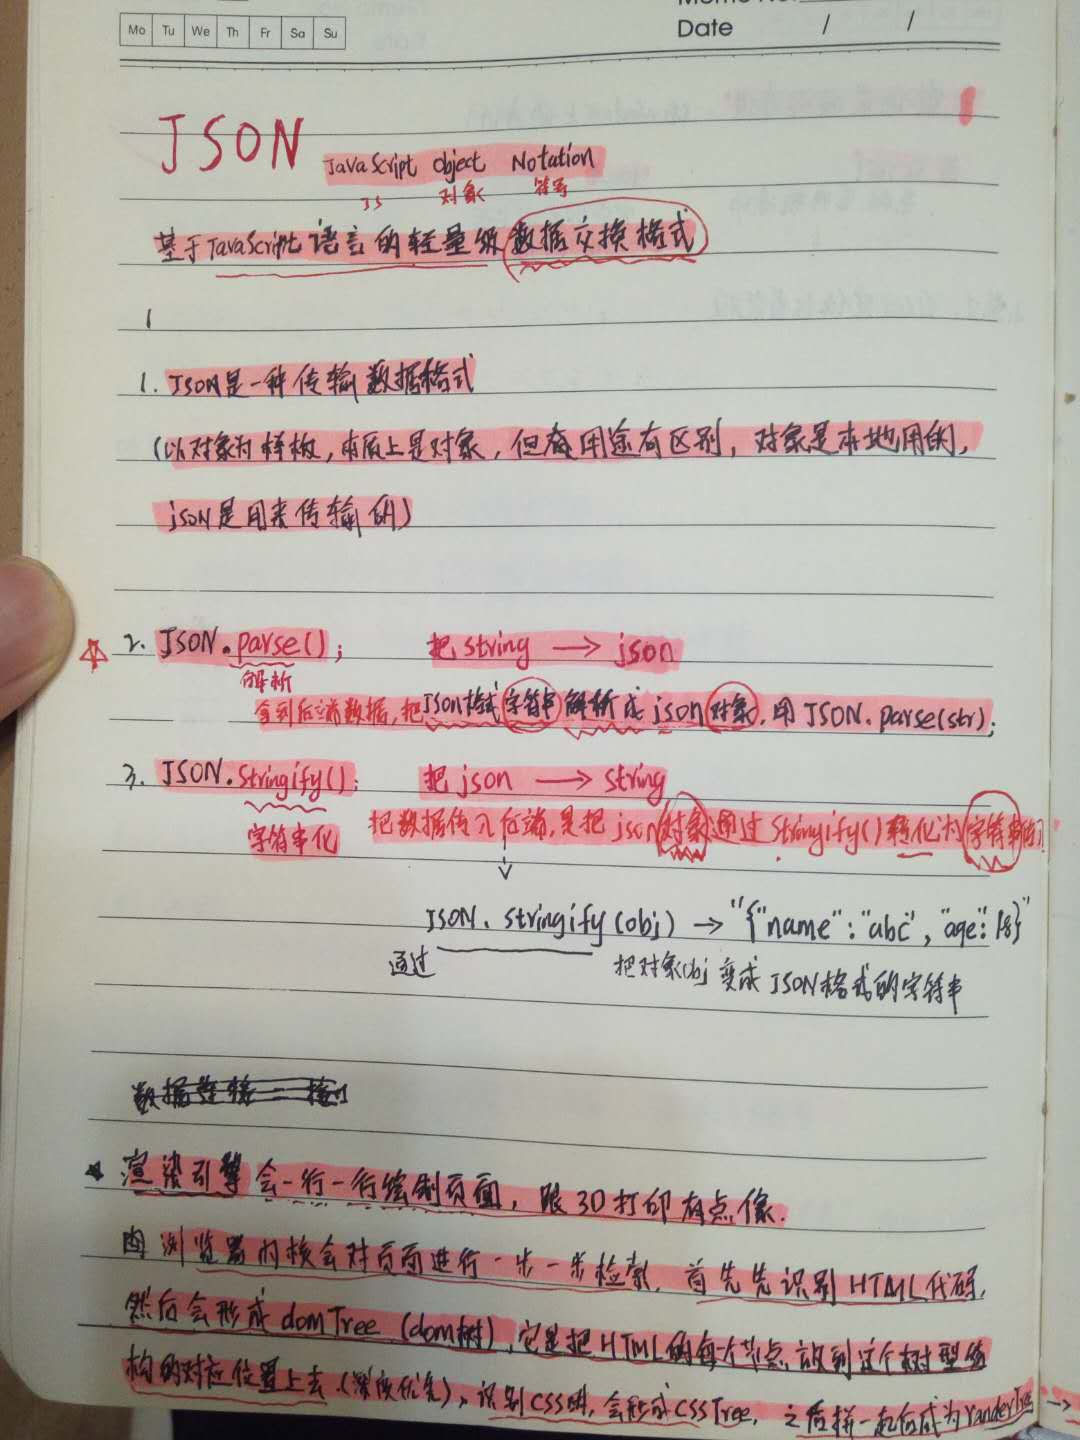 Memo No.
Mo Tu We Th Fr Sa Su
Date / /
JSON JavaScript Object Notation
JS 对象 符号
基于JavaScript语言的轻量级数据交换格式
1
1. JSON是一种传输数据格式
(以对象为样板,本质上是对象,但在用途有区别,对象是本地用的,
json是用来传输的)
2. JSON.parse(); 把string → json
解析
拿到后端数据,把JSON格式字符串解析成json对象.用JSON.parse(str);
3. JSON.stringify(): 把json → string
字符串化 把数据传入后端,是把json对象通过stringify()转化为字符串的
JSON.stringify(obj) → "{"name":"abc","age":18}"
通过 把对象obj变成JSON格式的字符串
渲染引擎会一行一行绘制页面,跟3D打印有点像.
浏览器内核会对页面进行一步一步检索,首先先识别HTML代码,
然后会形成domTree(dom树),它是把HTML的每个节点放到这个树型结
构的对应位置上去.(深度优先),识别CSS时,会形成CSSTree,之后拼一起后成为randerTree →